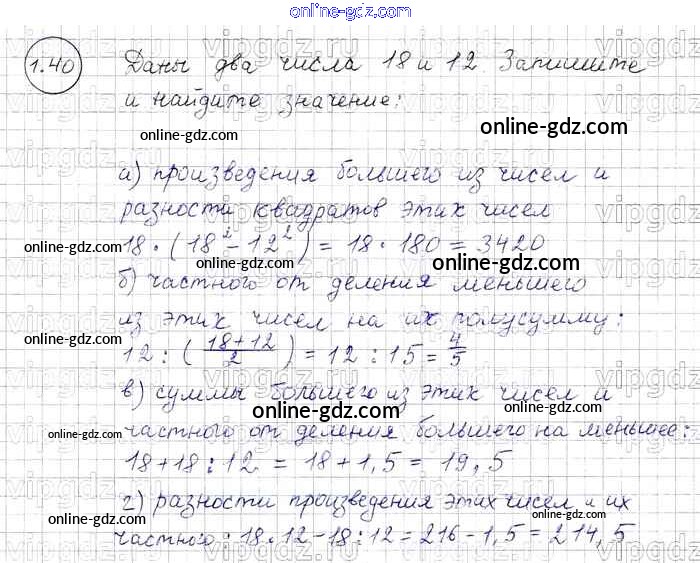 online-gdz.com
1.40 Даны два числа 18 и 12 Запишите
и найдите значение:
online-gdz.com
online-gdz.com
а) произведения большего из чисел и
разности квадратов этих чисел
online-gdz.com
18 · (18² - 12²) = 18 · 180 = 3420
online-gdz.com
online-gdz.com
б) частного от деления меньшего
из этих чисел на их полусумму:
online-gdz.com
online-gdz.com
12 : (18+12/2) = 12 : 15 = 4/5
в) суммы большего из этих чисел и
online-gdz.com
online-gdz.com
online-gdz.com
частного от деления большего на меньшее:
18+18:12 = 18+1,5 = 19,5
г) разности произведения этих чисел и их
online-gdz.com
online-gdz.com
частного: 18·12-18:12=216-1,5=214,5
online-gdz.com
vipgdz